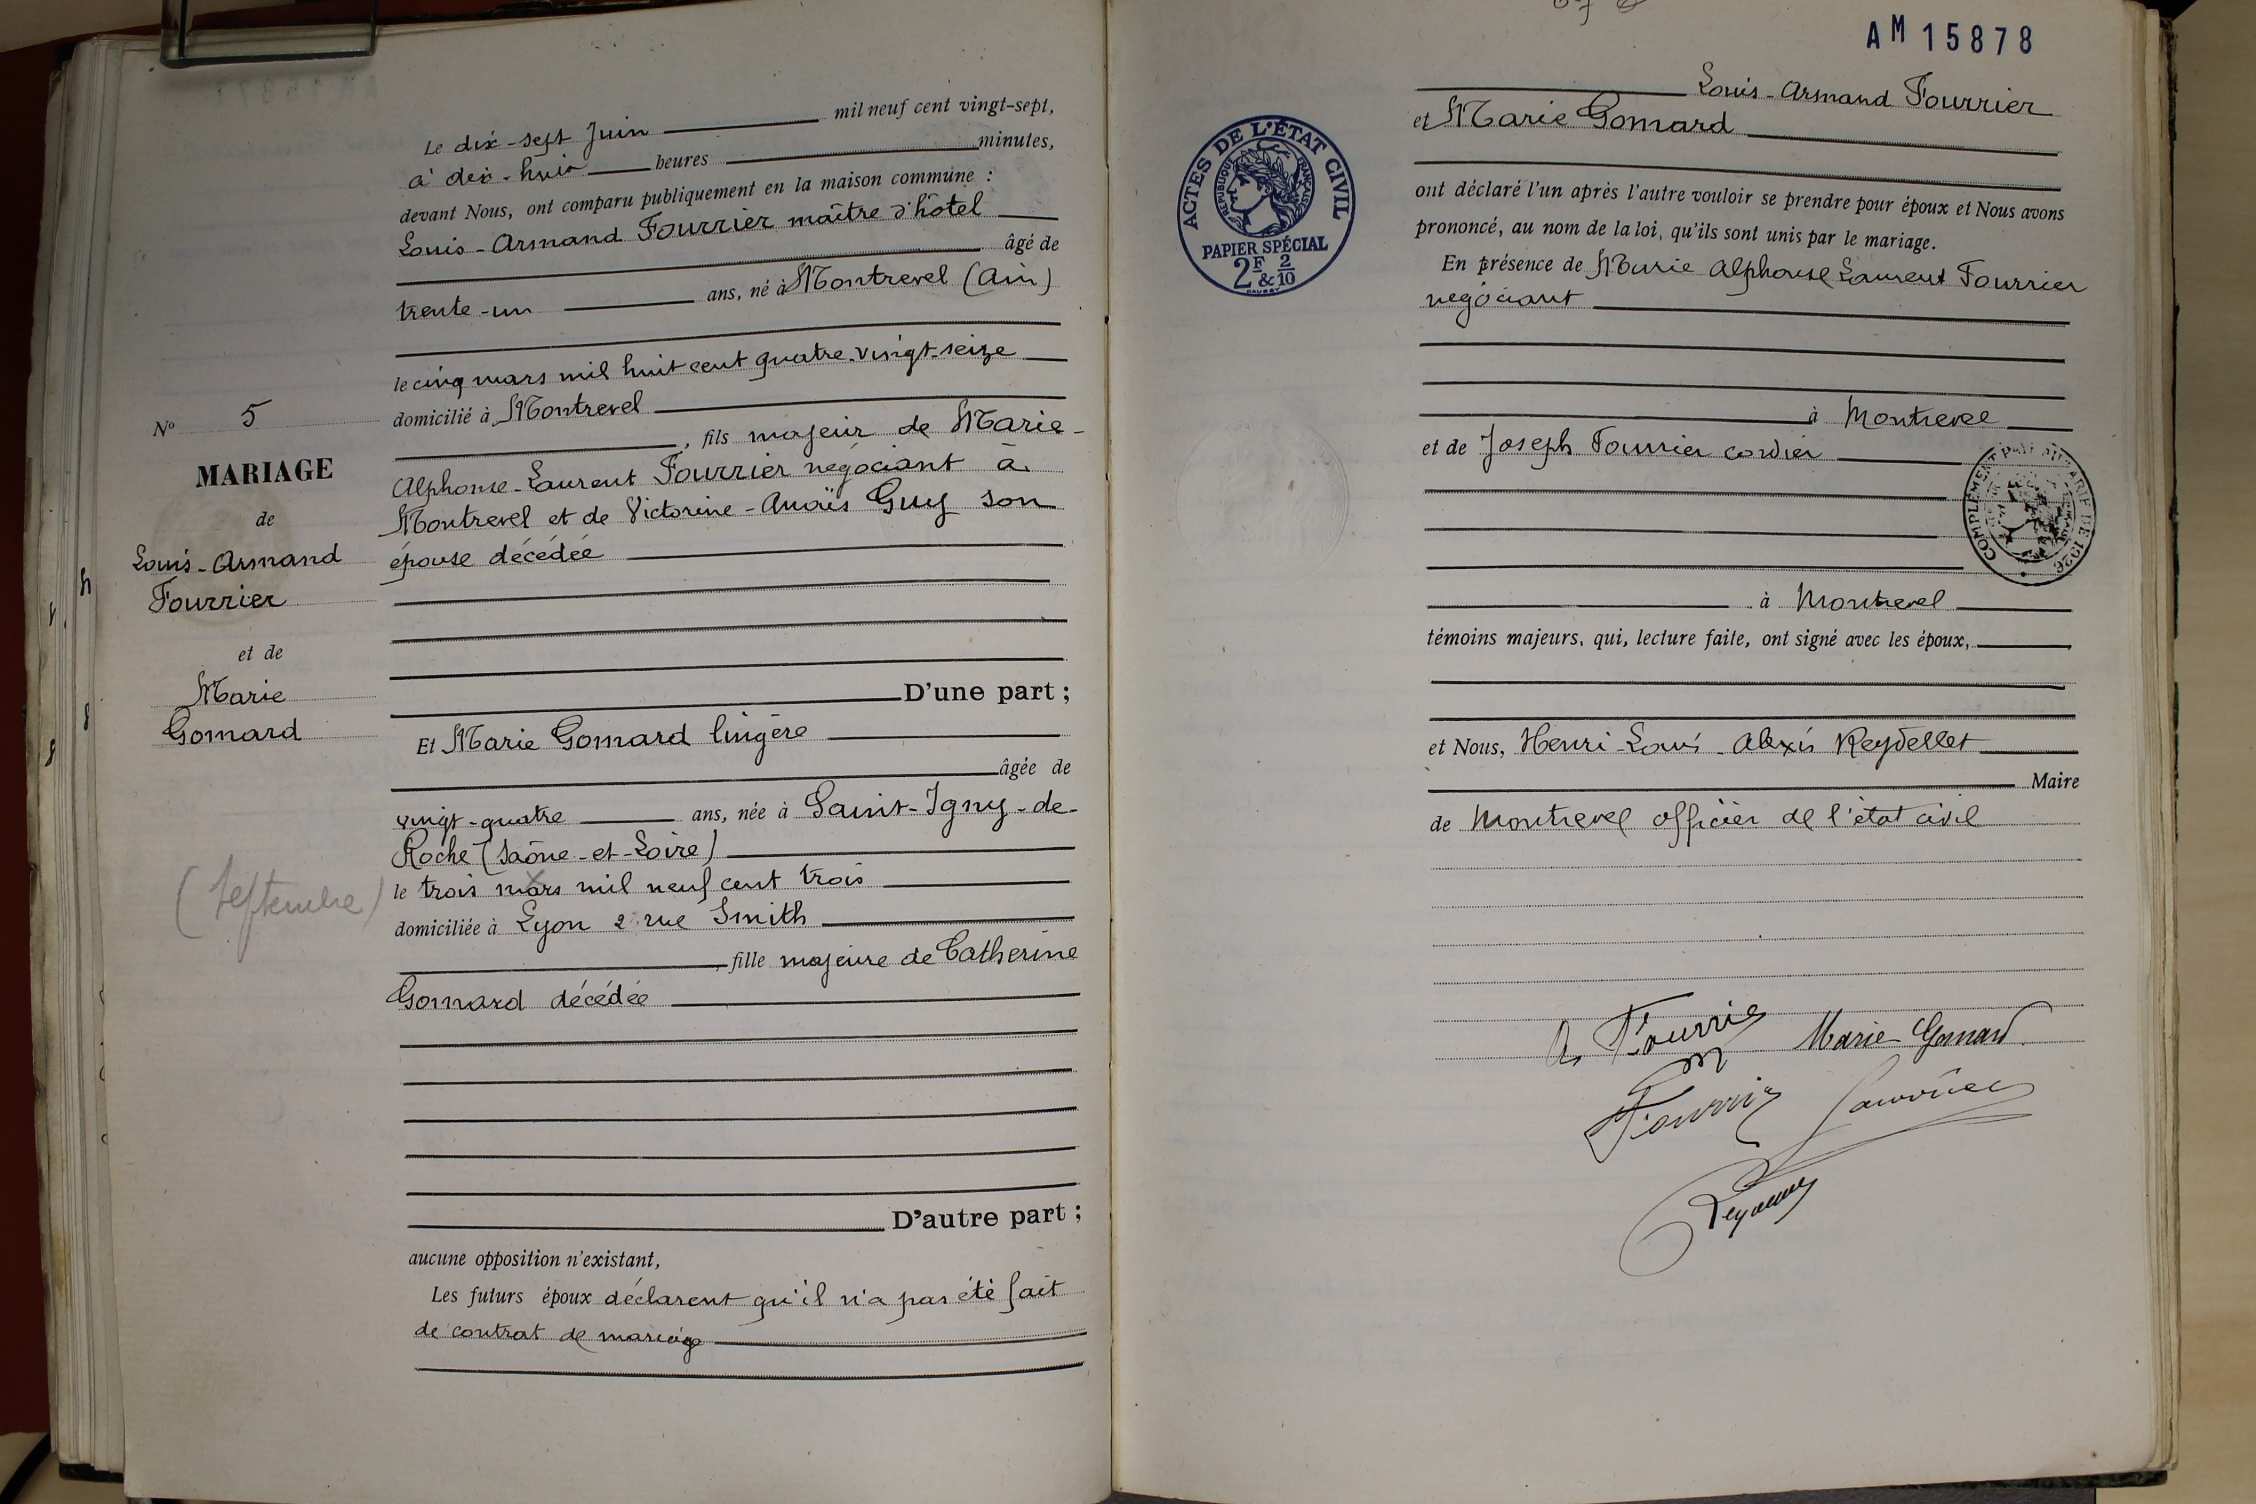 Le dix-sept Juin mil neuf cent vingt-sept,
à dix-huit heures minutes,
devant Nous, ont comparu publiquement en la maison commune :
Louis-Armand Fourrier maître d'hôtel
âgé de
trente-un ans, né à Montrevel (Ain)
le cinq mars mil huit cent quatre-vingt-seize
domicilié à Montrevel
, fils majeur de Marie-
Alphonse-Laurent Fourrier négociant à
Montrevel et de Victorine-Anaïs Guy son
épouse décédée
D'une part ;
No 5
MARIAGE
de
Louis-Armand
Fourrier
et de
Marie
Gomard
Et Marie Gomard lingère
âgée de
vingt-quatre ans, née à Saint-Igny-de-
Roche (Saône-et-Loire)
(Septembre)
le trois mars mil neuf cent trois
domiciliée à Lyon 2 rue Smith
, fille majeure de Catherine
Gomard décédée
D'autre part ;
aucune opposition n'existant,
Les futurs époux déclarent qu'il n'a pas été fait
de contrat de mariage
AM 15878
ACTES DE L'ÉTAT CIVIL
RÉPUBLIQUE FRANÇAISE
PAPIER SPÉCIAL
2F & 2/10
Louis-Armand Fourrier
et Marie Gomard
ont déclaré l'un après l'autre vouloir se prendre pour époux et Nous avons
prononcé, au nom de la loi, qu'ils sont unis par le mariage.
En présence de Marie Alphonse Laurent Fourrier
négociant
à Montrevel
et de Joseph Fourrier cordier
COMPLÉMENT PAR TARIF DE 1926
à Montrevel
témoins majeurs, qui, lecture faite, ont signé avec les époux,
et Nous, Henri-Louis-Alexis Reydellet
Maire
de Montrevel officier de l'état civil
A Fourrier Marie Gomard
Fourrier